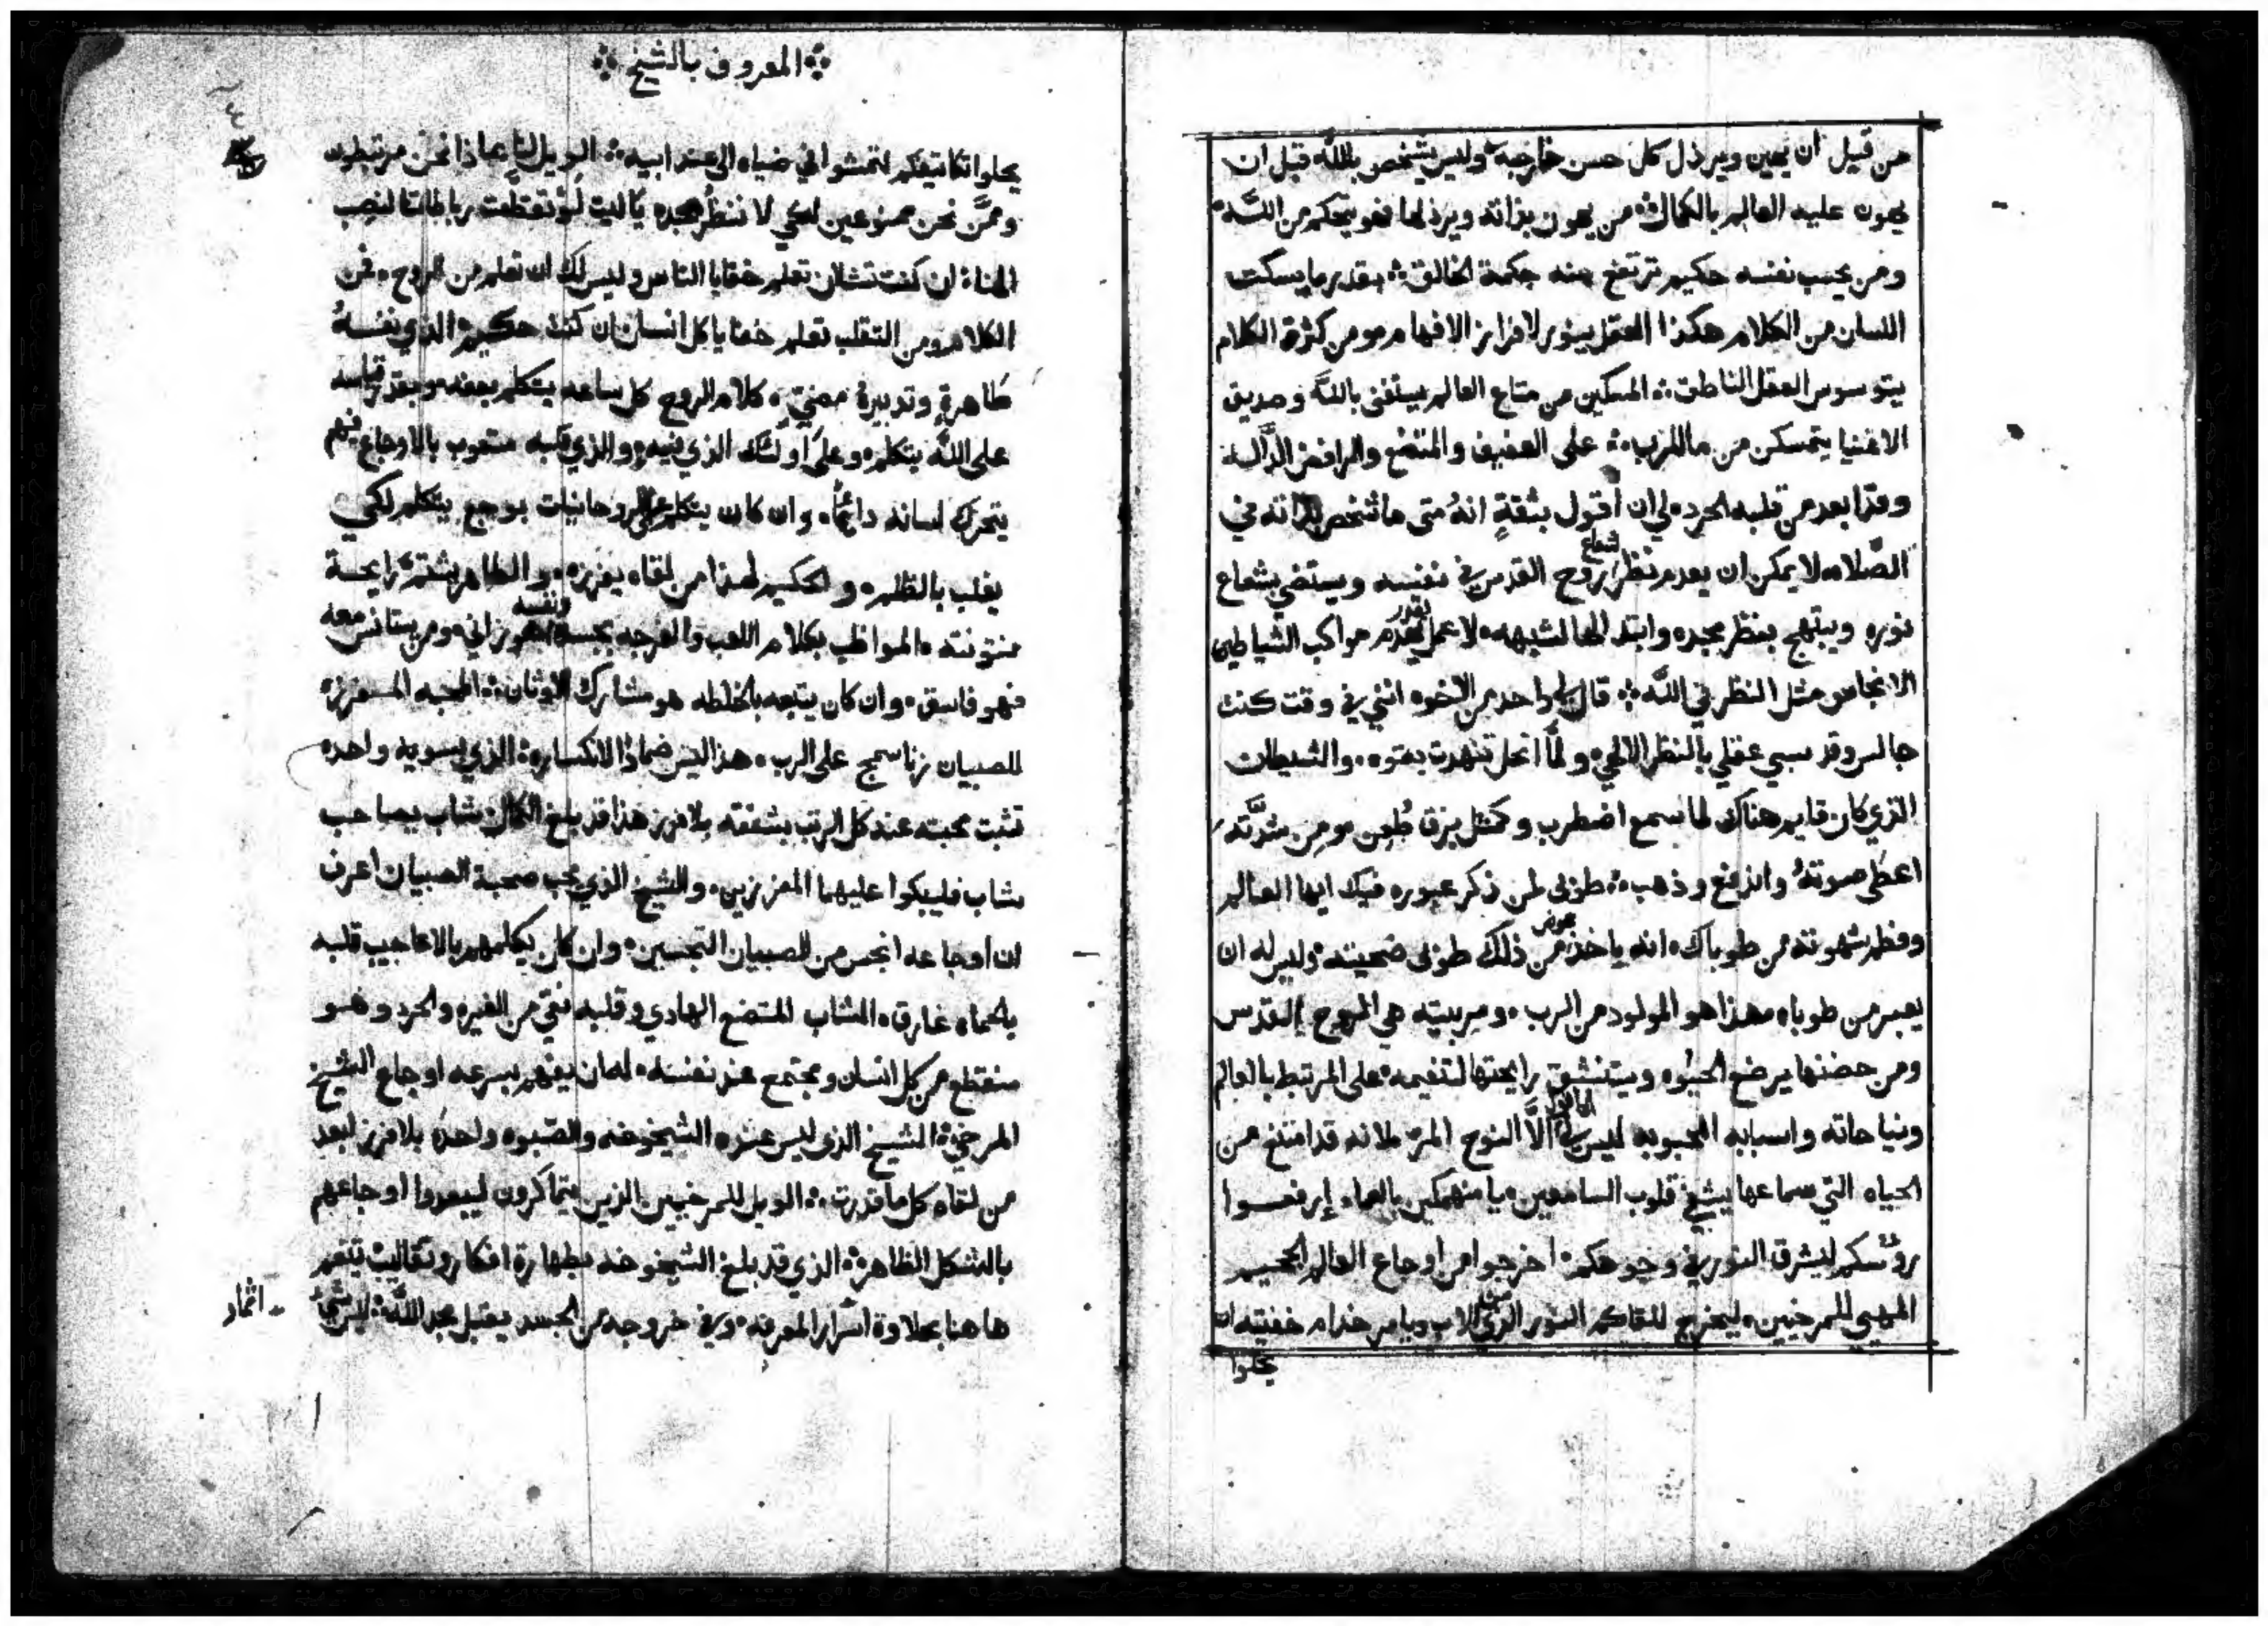 من قبل ان يهين ويرذل كل حسن خارجه وليس يتشخص بالله قبل ان
يهون عليه العالم بالكمال من يهون بذاته ويرذلها فهو يتحكم من الله
ومن يحسب نفسه حكيم ترتفع منه حكمة الخالق بقدر ما يسكت
اللسان من الكلام هكذا العقل ينور لافراز الافهام ومن كثرة الكلام
يتوسوس العقل الناطق المسكين من متاع العالم يستغنى بالله وصديق
الاغنيا يتمسكن من ما للرب على العفيف والمتضع والرافض الدالة
وقد ابعد من قلبه الحرد لي ان اقول بثقة انه متى ما شخص بذاته في
الصلاه لا يمكن ان يعدم نظر شعاع روح القدس في نفسه ويستضي بشعاع
نوره ويبتهج بنظر مجده لا عمل يقدر مواكب الشياطين
الانجاس مثل النظر في الله قال لي واحد من الاخوه انني في وقت كنت
جالس وقد سبي عقلي بالنظر الالهي ولما انحل تنهدت بقوه والشيطان
الذي كان قايم هناك لما سمع اضطرب وكمثل برق ومن شدته
اعطى صوته واندفع وذهب طوبى لمن ذكر عبوره فيك ايها العالم
وفطم شهوته من طوباك انه ياخذ عوض من ذلك طوبى وليس له ان
يعبر من طوباه هذا هو المولود من الرب ومربيته هي الروح القدس
ومن حضنها يرضع الحيوه ويستنشق رايحتها لتنعيمه على المرتبط بالعالم
ونياحاته واسبابه المحبوبه ليس الا النوح المر لانه قد امتنع من
الحياه التي سماعها قلوب السامعين يا منهمكين بالعماء إرفعوا
رؤسكم ليشرق النور في وجوهكم اخرجوا من اوجاع العالم
المرخيين ليخرج للقاكم النور الذي من الاب ويامر خدام خفيته ان
يحلوا
المعروف بالشيخ
يحلوا كتفيكم لتمشوا في ضياه الى عند ابيه الويل لنا بماذا نحن مرتبطون
وممن نحن ممنوعين لكي لا ننظر مجده يا ليت لو تقطعت رباطاتنا لنصب
ان كنت تشا ان تعلم خفايا الناس وليس لك ان تعلم من الروح فمن
الكلام ومن التقلب تعلم خفايا كل انسان ان كنت حكيم الذي نفسه
طاهرة وتدبيره مضي كلام الروح كل ساعه يتكلم بعفه وبقدر قياسه
على الله يتكلم وعلى اولئك الذي فيه والذي قلبه متعوب بالاوجاع فبهم
يتحرك لسانه دائما وان كان يتكلم على الروحانيات بوجع يتكلم لكي
يغلب بالظلم والحكيم لهذا من لقاه يفرزه والطاهر يشتم رايحة
نتونته المواظب بكلام اللعب والفرجه بجسده ونفسه هو زاني ومن يستانس معه
فهو فاسق وان كان يتجه بالخلطه هو مشارك الاوثان المحبه المفرزه
للصبيان زنا سمج على الرب هذا ليس ضماد لانكساره الذي بسويه واحده
تثبت محبته عند كل الرتب بشفقه بلا فرز هذا قد بلغ الكمال شاب يصاحب
شاب فليبكوا عليهما المفرزين والشيخ الذي يحب صحبة الصبيان اعرف
ان اوجاعه انجس من الصبيان النجسين وان كان يكلمهم بالاعاجيب قلبه
بالحماه غارق الشاب المتضع الهادي وقلبه نقي من الغيره والحرد وهو
منقطع من كل انسان ومجتمع عند نفسه يفهم بسرعه اوجاع الشيخ
المرخي الشيخ الذي ليس عنده الشيخوخه والصبوه واحده بلا فرز ابعد
من لقاه كل ما قدرت الويل للمرخيين الذين يتماكرون ليبعدوا اوجاعهم
بالشكل الظاهر الذي قد بلغ الشيخوخه بطهارة افكار وتقاليب يتنعم
هاهنا بحلاوة اسرار المعرفه وفي خروجه من الجسد يقبل مجد الله ليس
اثمار